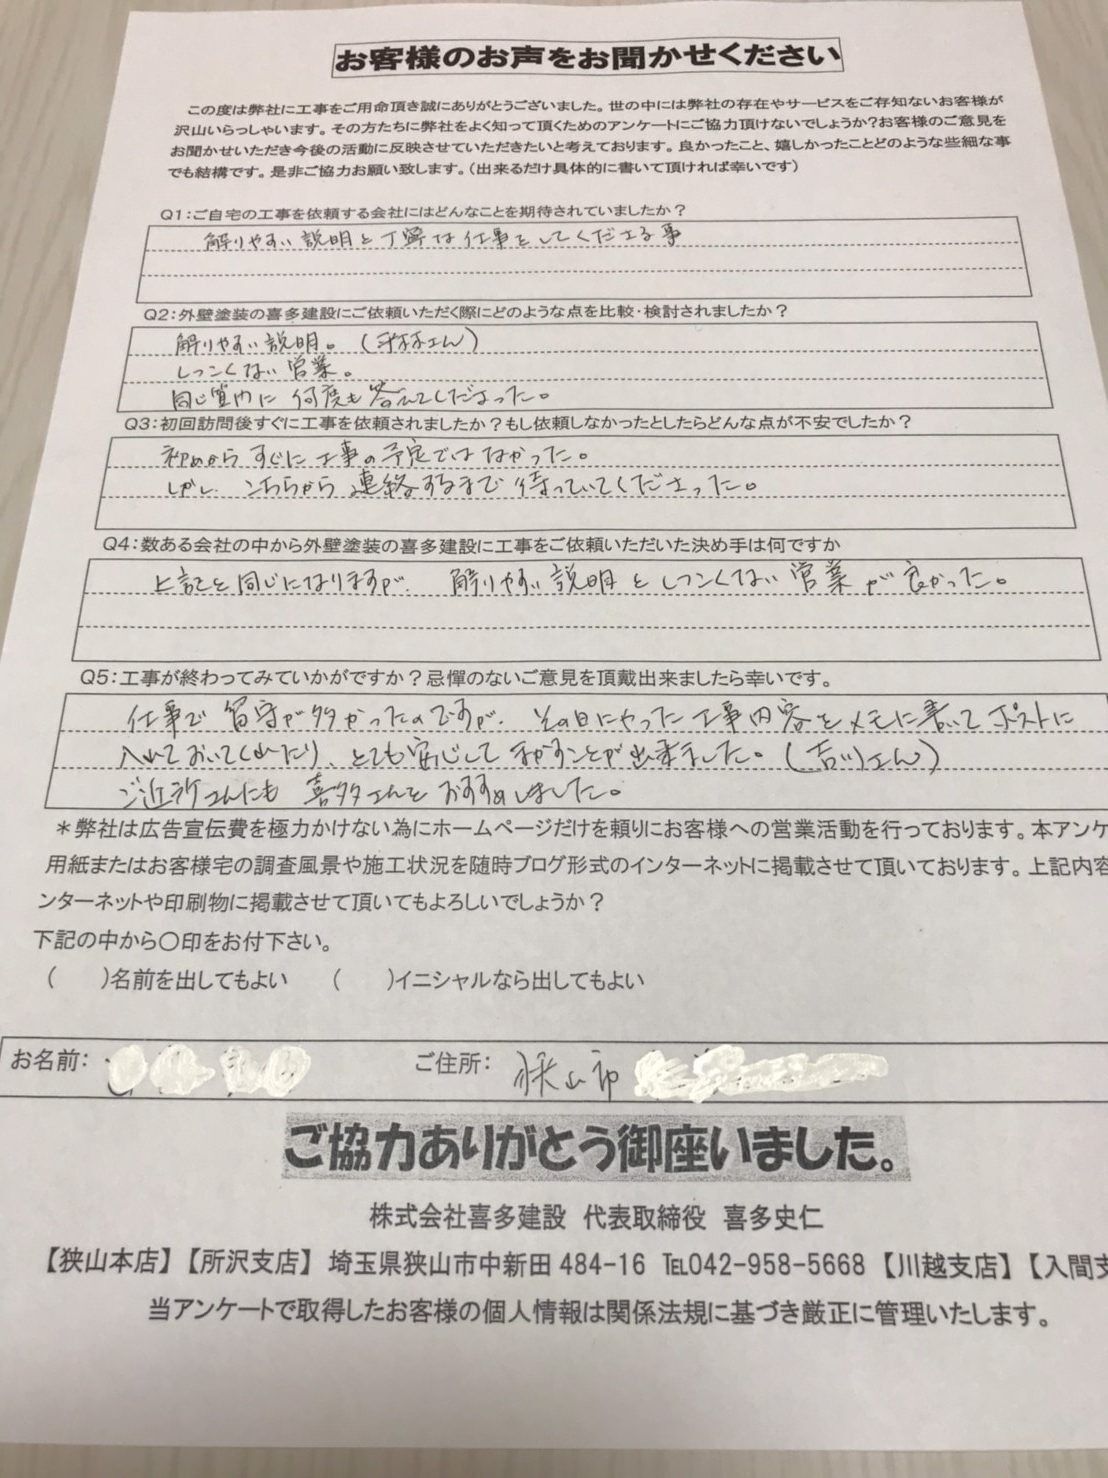 お客様のお声をお聞かせください
この度は弊社に工事をご用命頂き誠にありがとうございました。世の中には弊社の存在やサービスをご存知ないお客様が
沢山いらっしゃいます。その方たちに弊社をよく知って頂くためのアンケートにご協力頂けないでしょうか?お客様のご意見を
お聞かせいただき今後の活動に反映させていただきたいと考えております。良かったこと、嬉しかったことどのような些細な事
でも結構です。是非ご協力お願い致します。(出来るだけ具体的に書いて頂ければ幸いです)
Q1:ご自宅の工事を依頼する会社にはどんなことを期待されていましたか?
解りやすい説明と丁寧な仕事をしてくださる事
Q2:外壁塗装の喜多建設にご依頼いただく際にどのような点を比較・検討されましたか?
解りやすい説明。
しつこくない営業。
同じ質問に何度も答えてくださった。
Q3:初回訪問後すぐに工事を依頼されましたか?もし依頼しなかったとしたらどんな点が不安でしたか?
初めからすぐに工事の予定ではなかった。
しかし、こちらから連絡するまで待っていてくださった。
Q4:数ある会社の中から外壁塗装の喜多建設に工事をご依頼いただいた決め手は何ですか
上記と同じになりますが、解りやすい説明としつこくない営業が良かった。
Q5:工事が終わってみていかがですか?忌憚のないご意見を頂戴出来ましたら幸いです。
仕事で留守が多かったのですが、その日にやった工事内容をメモに書いてポストに
入れておいてくれたり、とても安心してまかすことが出来ました。(吉川さん)
ご近所さんにも喜多さんをおすすめしました。
*弊社は広告宣伝費を極力かけない為にホームページだけを頼りにお客様への営業活動を行っております。本アンケ
用紙またはお客様宅の調査風景や施工状況を随時ブログ形式のインターネットに掲載させて頂いております。上記内容
ンターネットや印刷物に掲載させて頂いてもよろしいでしょうか?
下記の中から〇印をお付下さい。
( )名前を出してもよい ( )イニシャルなら出してもよい
お名前: ご住所: 狭山市
ご協力ありがとう御座いました。
株式会社喜多建設 代表取締役 喜多史仁
【狭山本店】【所沢支店】 埼玉県狭山市中新田484-16 ℡042-958-5668 【川越支店】【入間支
当アンケートで取得したお客様の個人情報は関係法規に基づき厳正に管理いたします。